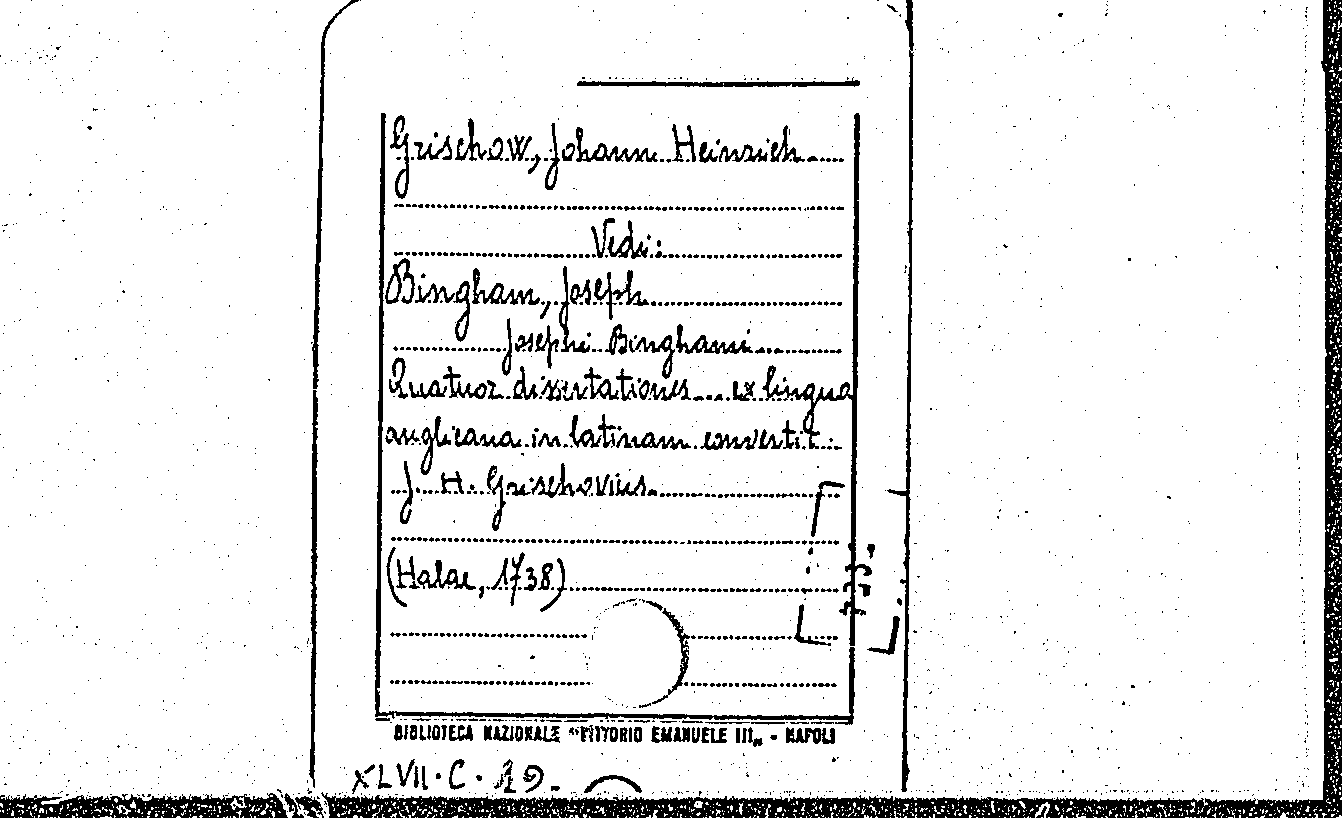 Grischow, Johann Heinrich
Vedi:
Bingham, Joseph
Josephi Binghami...
Quatuor dissertationes... ex lingua
anglicana in latinam convertit
J. H. Grischovius.
(Halae, 1738)
BIBLIOTECA NAZIONALE "VITTORIO EMANUELE III„ - NAPOLI
XLVII. C. 19.